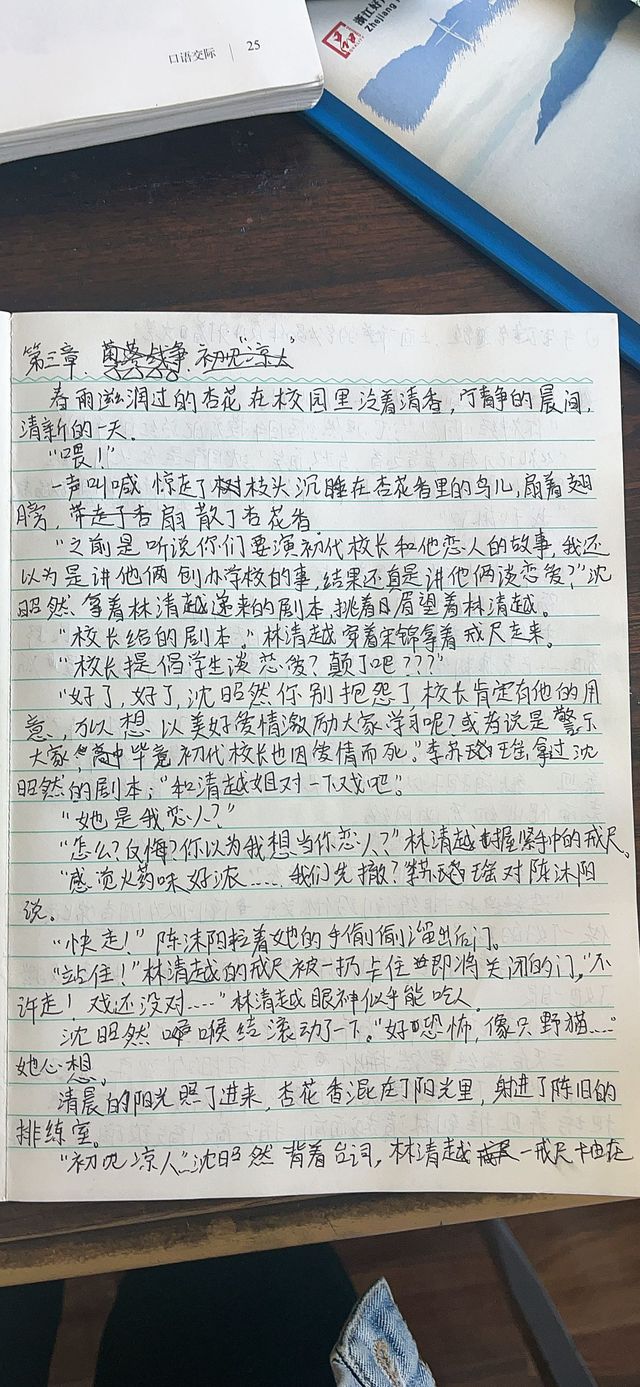 口语交际 | 25
浙江好
Zhejiang
第三章. 初见"凉人"
春雨滋润过的杏花在校园里泛着清香，宁静的晨间，
清新的一天.
"喂！"
一声叫喊惊走了树枝头沉睡在杏花香里的鸟儿，扇着翅
膀，带走了杏扇散了杏花香.
"之前是听说你们要演初代校长和他恋人的故事，我还
以为是讲他俩创办学校的事，结果还真是讲他俩谈恋爱？"沈
昭然拿着林清越递来的剧本，挑着眉望着林清越。
"校长给的剧本。"林清越穿着宋锦拿着戒尺走来。
"校长提倡学生谈恋爱？颠了吧？？？"
"好了，好了，沈昭然你别抱怨了，校长肯定有他的用
意，万一想以美好爱情激励大家学习呢？或者说是警示
大家，毕竟初代校长也因爱情而死。"李苏瑶拿过沈
昭然的剧本；"和清越姐对一下戏吧"。
"她是我恋人？"
"怎么？反悔？你以为我想当你恋人？"林清越握紧手中的戒尺。
"感觉火药味好浓……我们先撤？李苏瑶对陈沐阳
说.
"快走！"陈沐阳拉着她的手偷偷溜出后门。
"站住！"林清越的戒尺被一扔卡住即将关闭的门，"不
许走！戏还没对……"林清越眼神似乎能吃人。
沈昭然喉结滚动了一下。"好恐怖，像只野猫……"
她心想。
清晨的阳光照了进来，杏花香混在了阳光里，射进了陈旧的
排练室。
"初见凉人"沈昭然背着台词，林清越一戒尺抽在